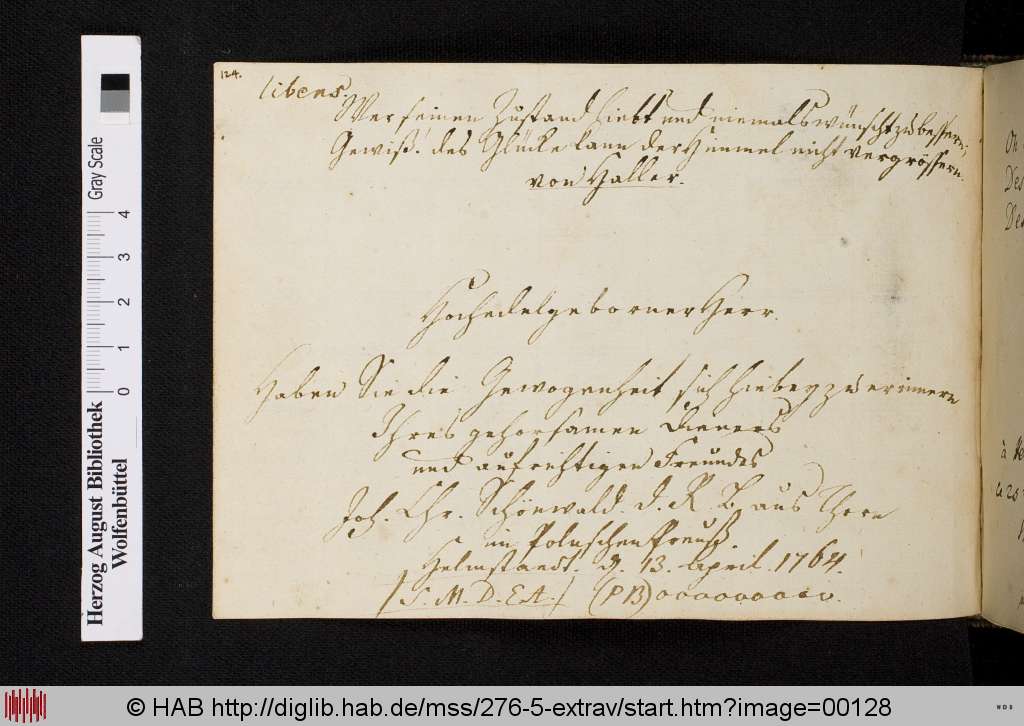 124.
libens.
Wer seinen Zustand liebt und niemals wünscht zu bessern,
Gewiß! des Glücke kann der Himmel nicht vergrössern.
von Haller.
Hochedelgeborner Herr.
Haben Sie die Gewogenheit sich hiebey zu erinnern
Ihres gehorsamen Dieners
und aufrichtigen Freundes
Joh. Chr. Schönwald. d. R. B. aus Thorn
im Polnschen Preuß.
Helmstaedt. d. 13. April. 1764.
/S. M. D. E. A./ (PB)
Herzog August Bibliothek
Wolfenbüttel
0 1 2 3 4
Gray Scale
© HAB http://diglib.hab.de/mss/276-5-extrav/start.htm?image=00128
HAB